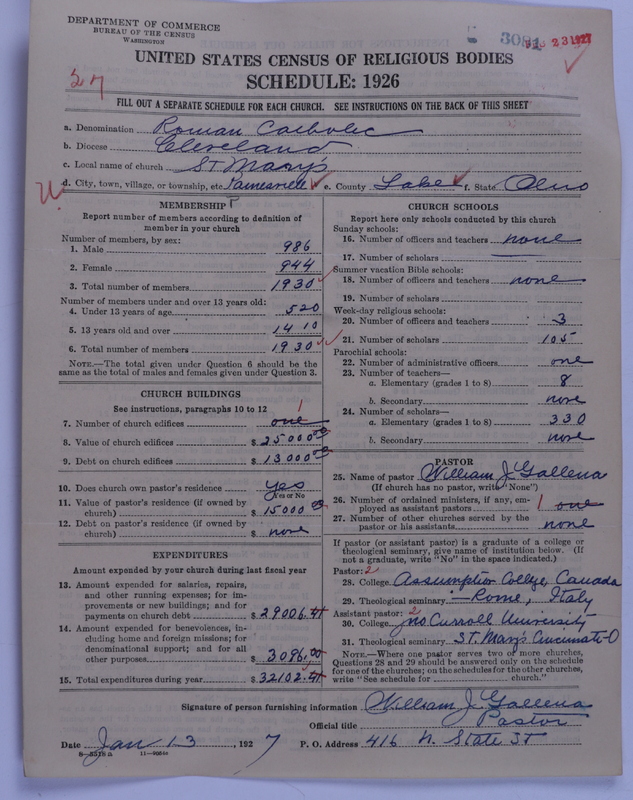 DEPARTMENT OF COMMERCE
BUREAU OF THE CENSUS
WASHINGTON
3081
23 1927
UNITED STATES CENSUS OF RELIGIOUS BODIES
SCHEDULE: 1926
FILL OUT A SEPARATE SCHEDULE FOR EACH CHURCH. SEE INSTRUCTIONS ON THE BACK OF THIS SHEET
a. Denomination Roman Catholic
b. Diocese Cleveland
c. Local name of church St Mary's
d. City, town, village, or township, etc. Painesville e. County Lake f. State Ohio
MEMBERSHIP
Report number of members according to definition of member in your church
Number of members, by sex:
1. Male 986
2. Female 944
3. Total number of members 1930
Number of members under and over 13 years old:
4. Under 13 years of age 520
5. 13 years old and over 1410
6. Total number of members 1930
NOTE.—The total given under Question 6 should be the same as the total of males and females given under Question 3.
CHURCH BUILDINGS
See instructions, paragraphs 10 to 12
7. Number of church edifices one 1
8. Value of church edifices $ 25000.00
9. Debt on church edifices $ 13000.00
10. Does church own pastor's residence yes
Yes or No
11. Value of pastor's residence (if owned by church) $ 15000.00
12. Debt on pastor's residence (if owned by church) $ none
EXPENDITURES
Amount expended by your church during last fiscal year
13. Amount expended for salaries, repairs, and other running expenses; for improvements or new buildings; and for payments on church debt $ 29006.41
14. Amount expended for benevolences, including home and foreign missions; for denominational support; and for all other purposes $ 3096.00
15. Total expenditures during year $ 32102.41
CHURCH SCHOOLS
Report here only schools conducted by this church
Sunday schools:
16. Number of officers and teachers none
17. Number of scholars
Summer vacation Bible schools:
18. Number of officers and teachers none
19. Number of scholars
Week-day religious schools:
20. Number of officers and teachers 3
21. Number of scholars 105
Parochial schools:
22. Number of administrative officers one
23. Number of teachers—
a. Elementary (grades 1 to 8) 8
b. Secondary none
24. Number of scholars—
a. Elementary (grades 1 to 8) 330
b. Secondary none
PASTOR
25. Name of pastor William J Gallena
(If church has no pastor, write "None")
26. Number of ordained ministers, if any, employed as assistant pastors 1 one
27. Number of other churches served by the pastor or his assistants none
If pastor (or assistant pastor) is a graduate of a college or theological seminary, give name of institution below. (If not a graduate, write "No" in the space indicated.)
Pastor: 2
28. College Assumption College, Canada
29. Theological seminary Rome, Italy
Assistant pastor: 2
30. College Jno Carroll University
31. Theological seminary St. Mary's Cincinnati-O
NOTE.—Where one pastor serves two or more churches, Questions 28 and 29 should be answered only on the schedule for one of the churches; on the schedules for the other churches, write "See schedule for church."
Signature of person furnishing information William J Gallena
Official title Pastor
Date Jan 13, 1927 P. O. Address 416 N. State St
8—5518 a 11—9064